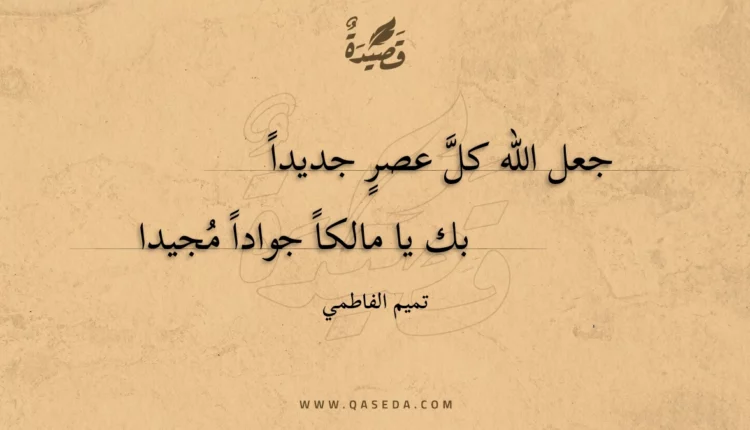 قَصِيدَةٌ
جعل الله كلَّ عصرٍ جديداً
بك يا مالكاً جواداً مُجيدا
تميم الفاطمي
WWW.QASEDA.COM